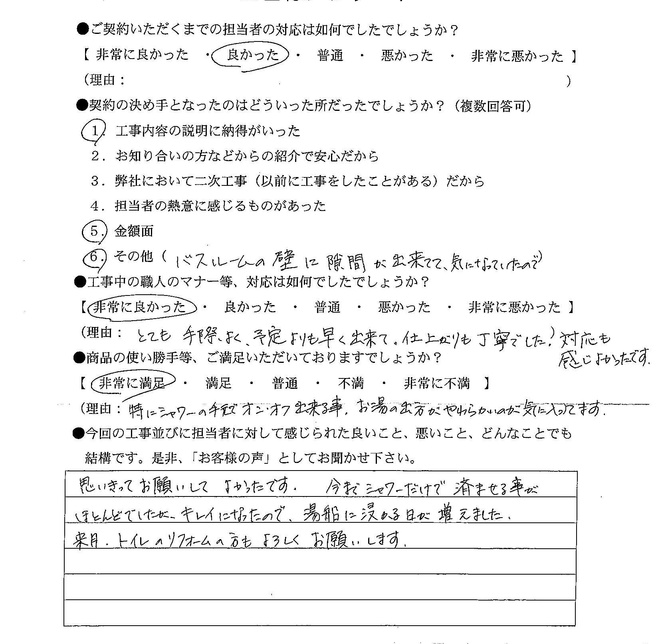 ●ご契約いただくまでの担当者の対応は如何でしたでしょうか？
【 非常に良かった ・ 良かった ・ 普通 ・ 悪かった ・ 非常に悪かった 】
（理由： ）
●契約の決め手となったのはどういった所だったでしょうか？（複数回答可）
1．工事内容の説明に納得がいった
2．お知り合いの方などからの紹介で安心だから
3．弊社において二次工事（以前に工事をしたことがある）だから
4．担当者の熱意に感じるものがあった
5．金額面
6．その他（ バスルームの壁に隙間が出来てて、気になっていたので）
●工事中の職人のマナー等、対応は如何でしたでしょうか？
【 非常に良かった ・ 良かった ・ 普通 ・ 悪かった ・ 非常に悪かった 】
（理由： とても手際よく、予定よりも早く出来て。仕上がりも丁寧でした！対応も
感じよかったです.
●商品の使い勝手等、ご満足いただいておりますでしょうか？
【 非常に満足 ・ 満足 ・ 普通 ・ 不満 ・ 非常に不満 】
（理由： 特にシャワーの手元でオン・オフ出来る事，お湯の出方がやわらかいのが気に入ってます.
●今回の工事並びに担当者に対して感じられた良いこと、悪いこと、どんなことでも
結構です。是非、「お客様の声」としてお聞かせ下さい。
思いきってお願いしてよかったです． 今までシャワーだけで済ませる事が
ほとんどでしたが、キレイになったので、湯船に浸かる日が増えました.
来月．トイレのリフォームの方もよろしくお願いします.